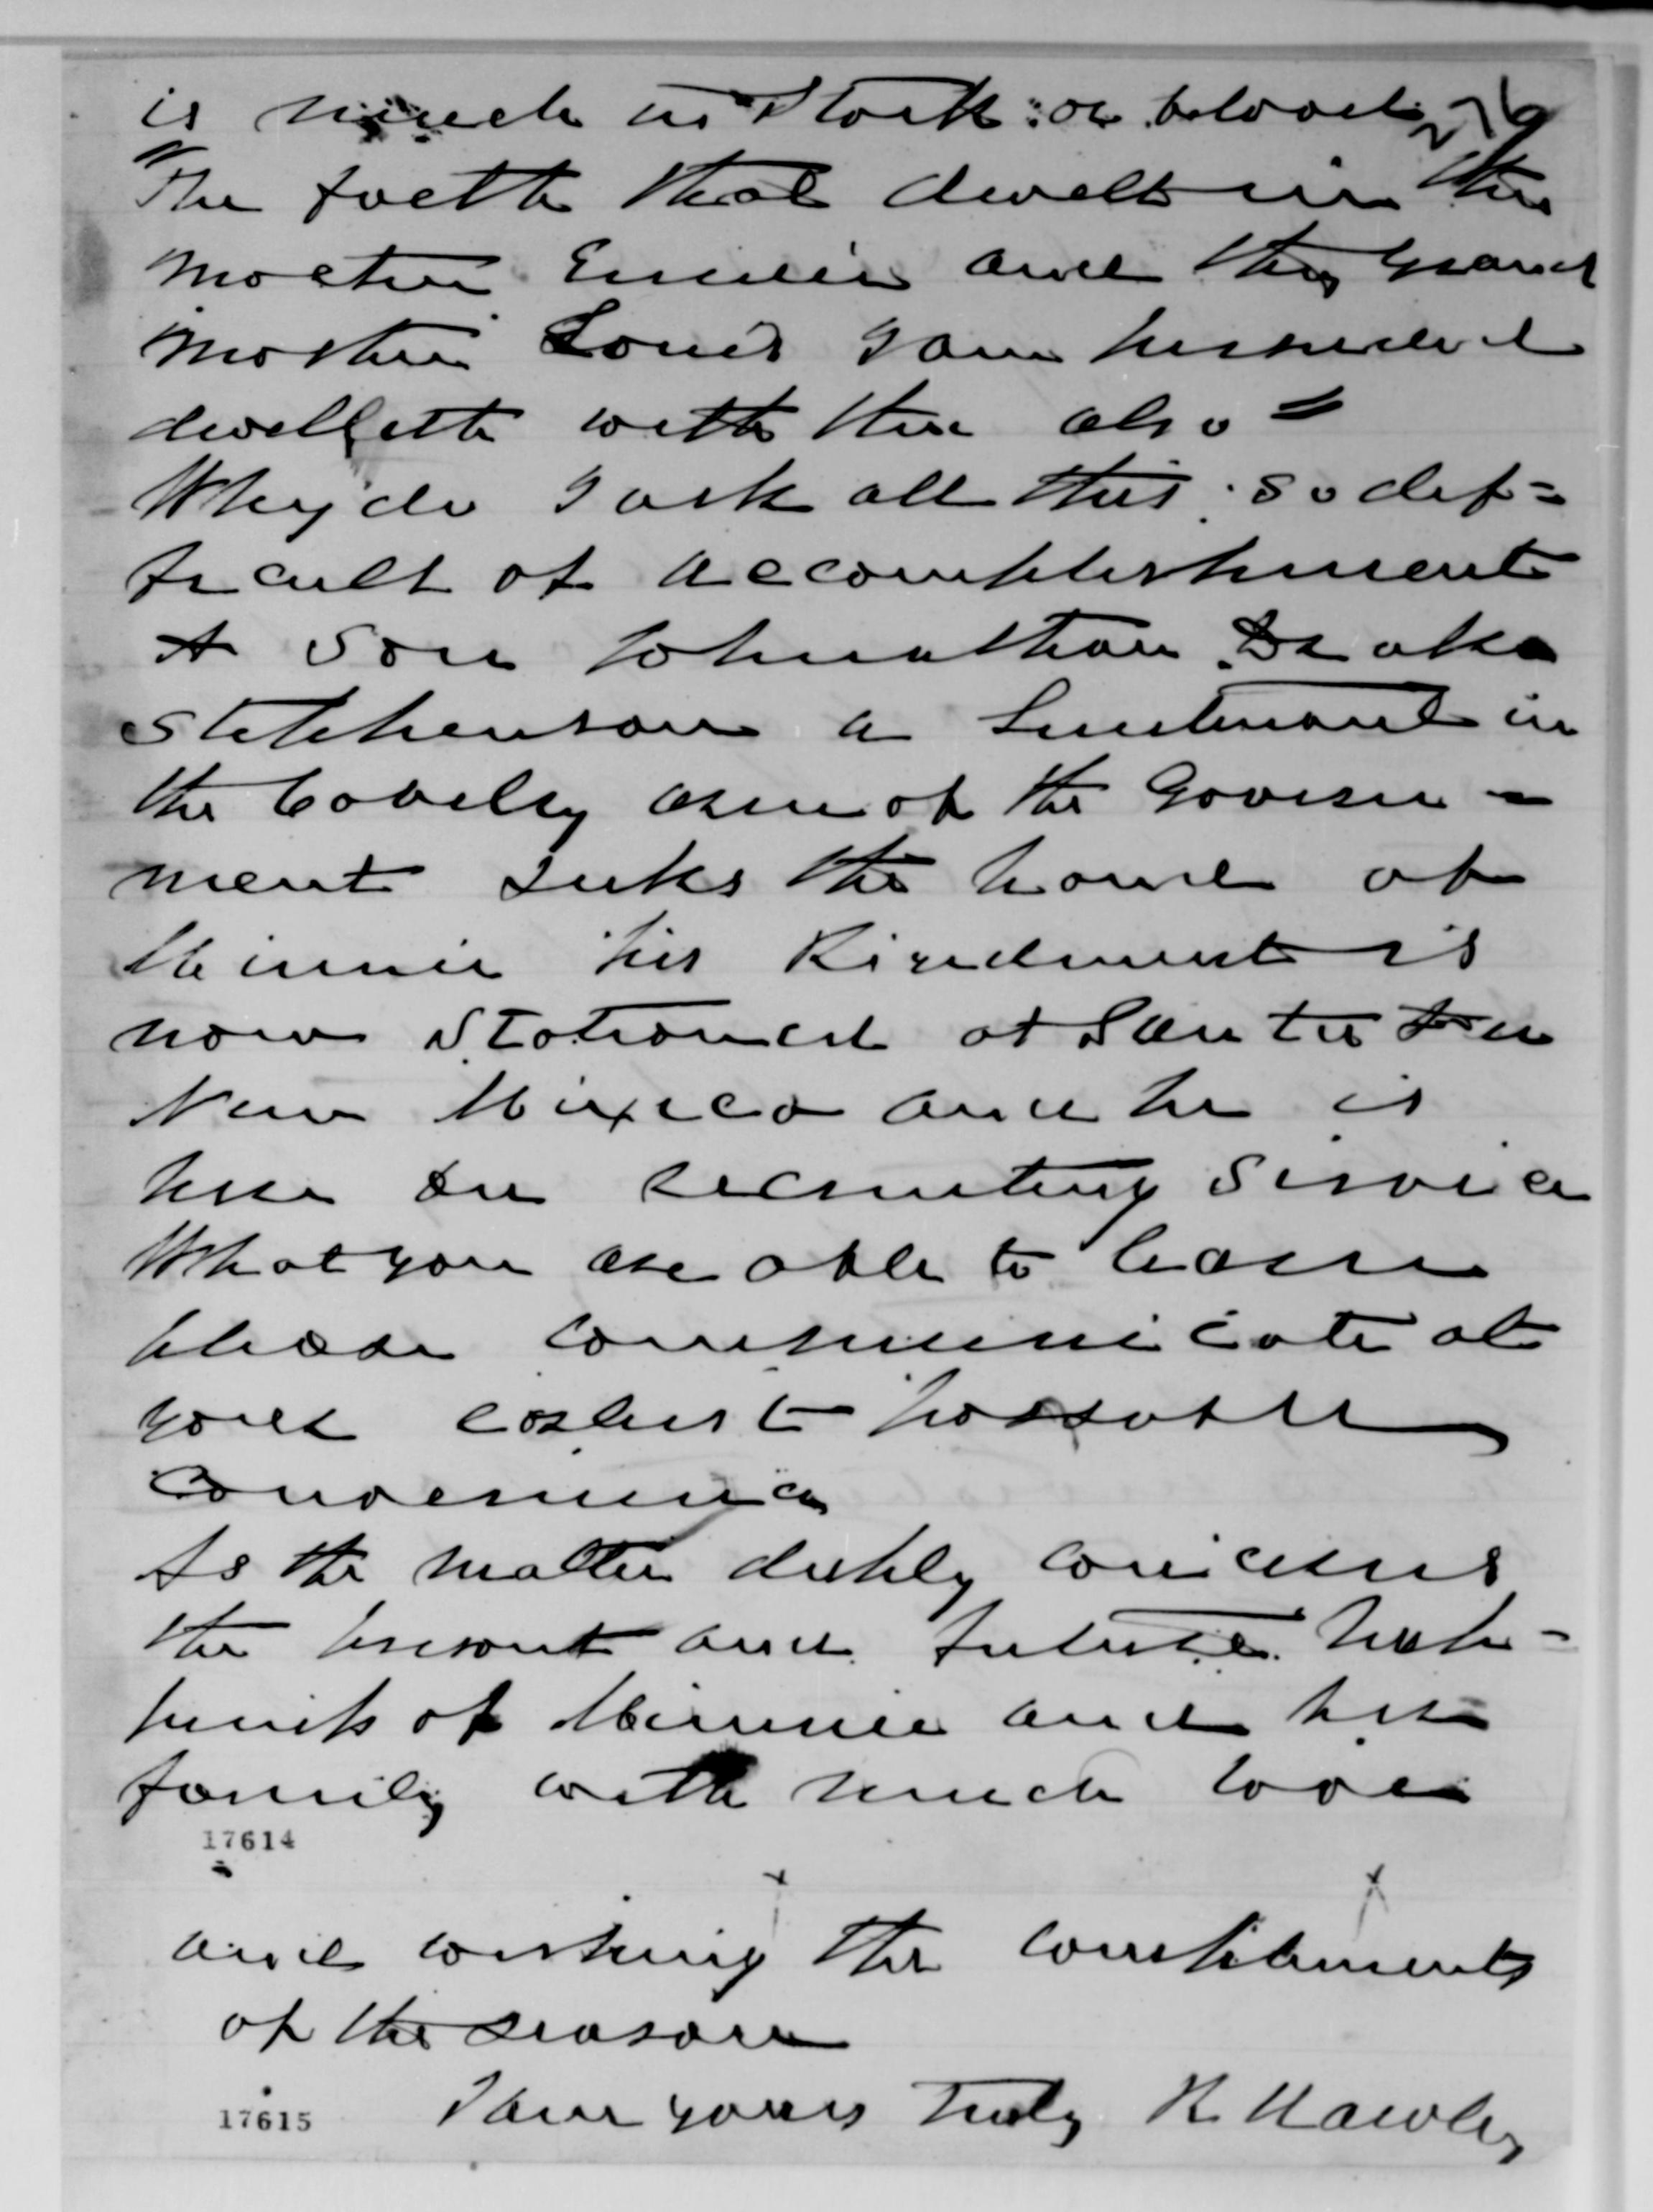 is much in Stock or blood
"The faith that dwelt in thy
Mother Eunice and thy grand
Mother Louis I am persuaded
dwelleth with thee also"
Why do I ask all this so dif=
ficult of accomplishment
A Son Johnathan Drake
Stephenson a Lieutenant in
the Cavelry arm of the Govern=
ment seeks the hand of
Minnie his Rigdment is
now stationed at Santa Fee
New Mexico and he is
here on recruting Service
What you are able to learn
please communicate at
your earlest possable
Convenience
As the matter deeply concerns
the present and future hap=
piness of Minnie and her
family with much love
17614
and wishing the compliments
of the season
17615 I am yours truly R. Hawley